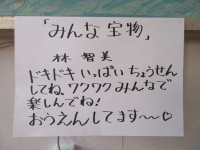 「みんな宝物」
林 智美
ドキドキ いっぱい ちょうせん
してね。ワクワク みんなで
楽しんでね!
おうえんしてます〜♡